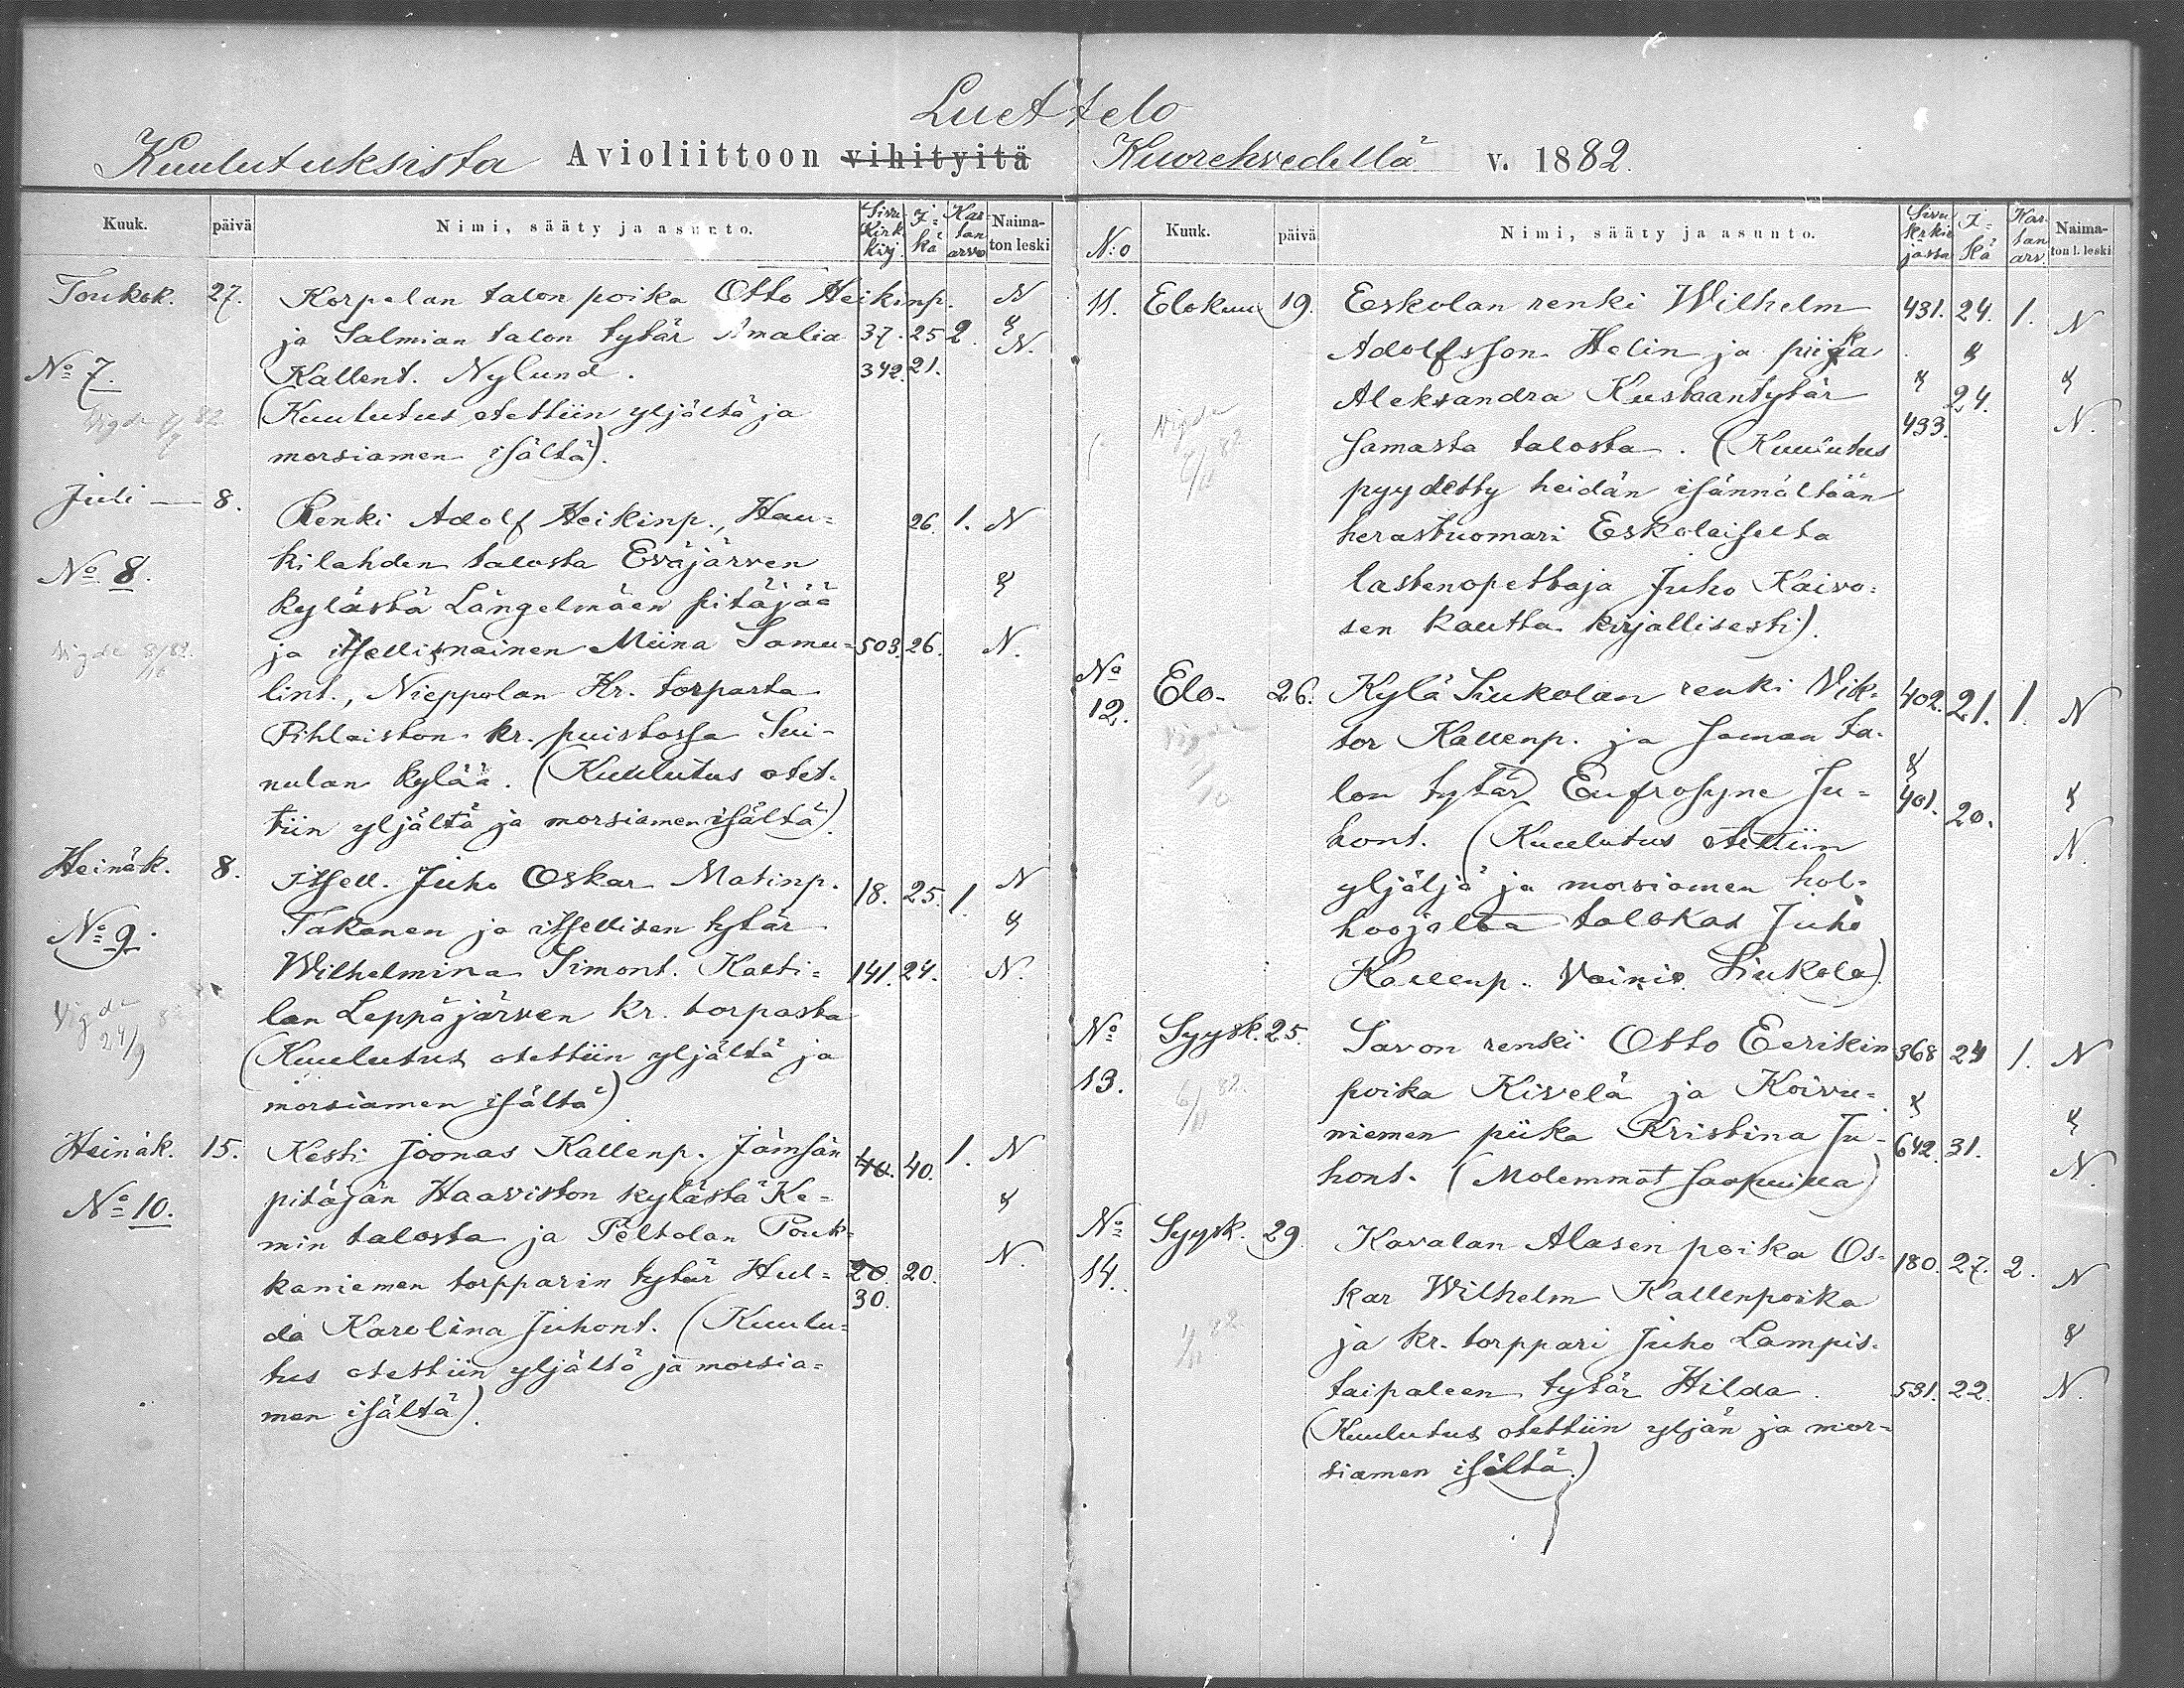 Luettelo
Kuulutuksista Avioliittoon vihityitä Kuorehvedellä v. 1882.
Kuuk. päivä Nimi, sääty ja asunto. Sivu Kirk. kirj I-kä Kastan arvo Naimaton leski
Toukok. 27. Korpelan talon poika Otto Heikinp. N
ja Salmian talon tytär Amalia 37. 25 2. & N.
No 7. Kallent. Nylund. 342. 21.
(Kuulutus otettiin yljältä ja
Vigde 82
morsiamen isältä).
Juli — 8. Renki Adolf Heikinp., Hau= 26. 1. N
No 8. kilahden talosta Eväjärven
kylästä Längelmäen pitäjää &
Vigde 8/10 82.
ja itsellisnainen Miina Samu= 503. 26. N.
lint., Nieppolan Kr. torpasta
Pihlaiston kr. puistossa Sui-
nulan kylää. (Kuulutus otet-
tiin yljältä ja morsiamen isältä).
Heinäk. 8. Itsell. Juho Oskar Matinp. 18. 25. 1. N
No 9. Takanen ja itsellisen tytär &
Wilhelmina Simont. Kalti= 141. 24. N.
Vigde 24/9
lan Leppäjärven kr. torpasta
(Kuulutus otettiin yljältä ja
morsiamen isältä)
Heinäk. 15. Kesti Joonas Kallenp. Jämsän 40. 40. 1. N
No 10. pitäjän Haaviston kylästä Ke- &
min talosta ja Peltolan Pouk- N.
kaniemen torpparin tytär Hul= 20. 20.
30.
da Karolina Juhont. (Kuulu=
tus otettiin yljältä ja morsia=
men isältä).
N:o Kuuk. päivä Nimi, sääty ja asunto. Sivu kirkirjasta I-kä Kastan arv. Naimaton l. leski
11. Elokuu 19. Eskolan renki Wilhelm 431. 24. 1. N
Adolfsson Helin ja piika &
Aleksandra Kustaantytär & 24. &
Vigde 82
samasta talosta. (Kuulutus 433. N.
pyydetty heidän isännältään
herastuomari Eskolaiselta
lastenopettaja Juho Kaivo=
sen kautta kirjallisesti).
No 12. Elo- 26. Kylä Siukolan renki Vik- 402. 21. 1. N
Vigde
tor Kallenp. ja saman ta- &
lon tytär Eufrosyne Ju- 401. 20. &
hont. (Kuulutus otettiin N.
yljäljä ja morsiamen hol-
hoojalta talokas Juho
Kallenp. Vainio Siukola)
No 13. Syysk. 25. Savon renki Otto Eerikin 368 24 1. N
6/11 82.
poika Kivelä ja Koivu- & &
niemen piika Kristina Ju- 642. 31. N.
hont. (Molemmat saapuvilla)
No 14. Syysk. 29. Kavalan Alasen poika Os- 180. 27. 2. N
kar Wilhelm Kallenpoika
82.
ja kr. torppari Juho Lampis- &
taipaleen tytär Hilda. 531. 22. N.
(Kuulutus otettiin yljän ja mor=
siamen isältä.)